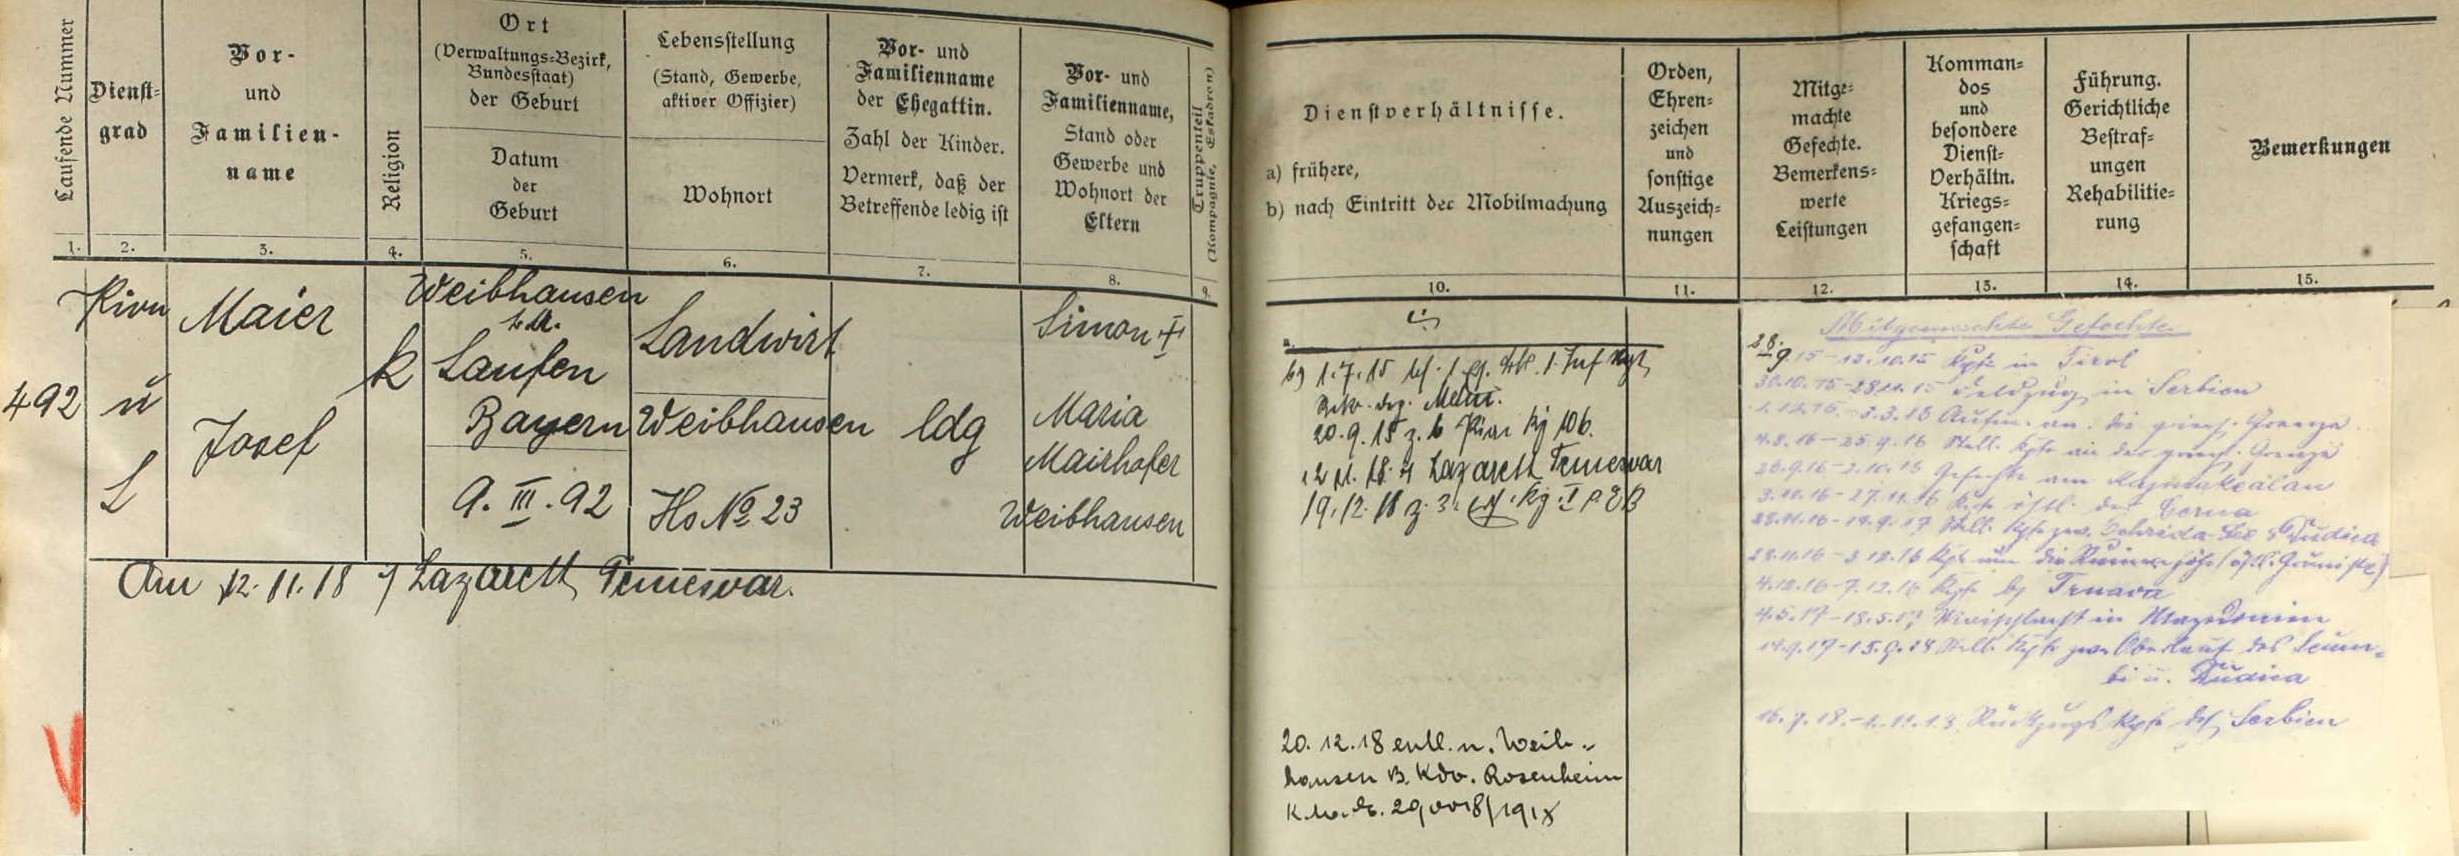 Laufende Nummer
Dienst-
grad
Vor-
und
Familien-
name
Religion
Ort
(Verwaltungs-Bezirk,
Bundesstaat)
der Geburt
Datum
der
Geburt
Lebensstellung
(Stand, Gewerbe,
aktiver Offizier)
Wohnort
Vor- und
Familienname
der Ehegattin.
Zahl der Kinder.
Vermerk, daß der
Betreffende ledig ist
Vor- und
Familienname,
Stand oder
Gewerbe und
Wohnort der
Eltern
Truppenteil
(Kompagnie, Eskadron)
1. 2. 3. 4. 5. 6. 7. 8. 9.
492
Pion
u
L
Maier
Josef
k
Weibhausen
Laufen
Bayern
9. III. 92
Landwirt
Weibhausen
Hs No 23
ldg
Simon †
Maria
Mairhofer
Weibhausen
Am 12.11.18 Lazarett Temesvar.
Dienstverhältnisse.
a) frühere,
b) nach Eintritt der Mobilmachung
Orden,
Ehren-
zeichen
und
sonstige
Auszeich-
nungen
Mitge-
machte
Gefechte.
Bemerkens-
werte
Leistungen
Komman-
dos
und
besondere
Dienst-
Verhältn.
Kriegs-
gefangen-
schaft
Führung.
Gerichtliche
Bestraf-
ungen
Rehabilitie-
rung
Bemerkungen
10. 11. 12. 13. 14. 15.
b) 1.7.15 1. Inf Rgt
20.9.15 z. Kg 106.
12.11.18 Lazarett Temesvar
19.12.18 z. 3.
20.12.18 entl. n. Weib-
hausen B. Kdo. Rosenheim
Mitgemachte Gefechte
28.9.15 – 12.10.15 Kpfe in Tirol
30.10.15 – 28.11.15 Feldzug in Serbien
1.12.15 – 3.3.16 Aufm. an der griech. Grenze
4.3.16 – 25.9.16 Stell. Kpfe an der griech. Grenze
26.9.16 – 2.10.16 Gefechte am Kajmakcalan
3.10.16 – 27.11.16 Kpfe östl. der Cerna
28.11.16 – 14.9.17 Stell. Kpfe zw. Ochrida-See u. Dudica
28.11.16 – 3.12.16 Kpfe um die
4.12.16 – 7.12.16 Kpfe bj Trnava
4.5.17 – 18.5.17 in Mazedonien
14.9.17 – 15.9.18 Stell. Kpfe zw. Oberlauf des Scum-
bi u. Dudica
16.9.18. – Rückzugs Kpfe dch Serbien